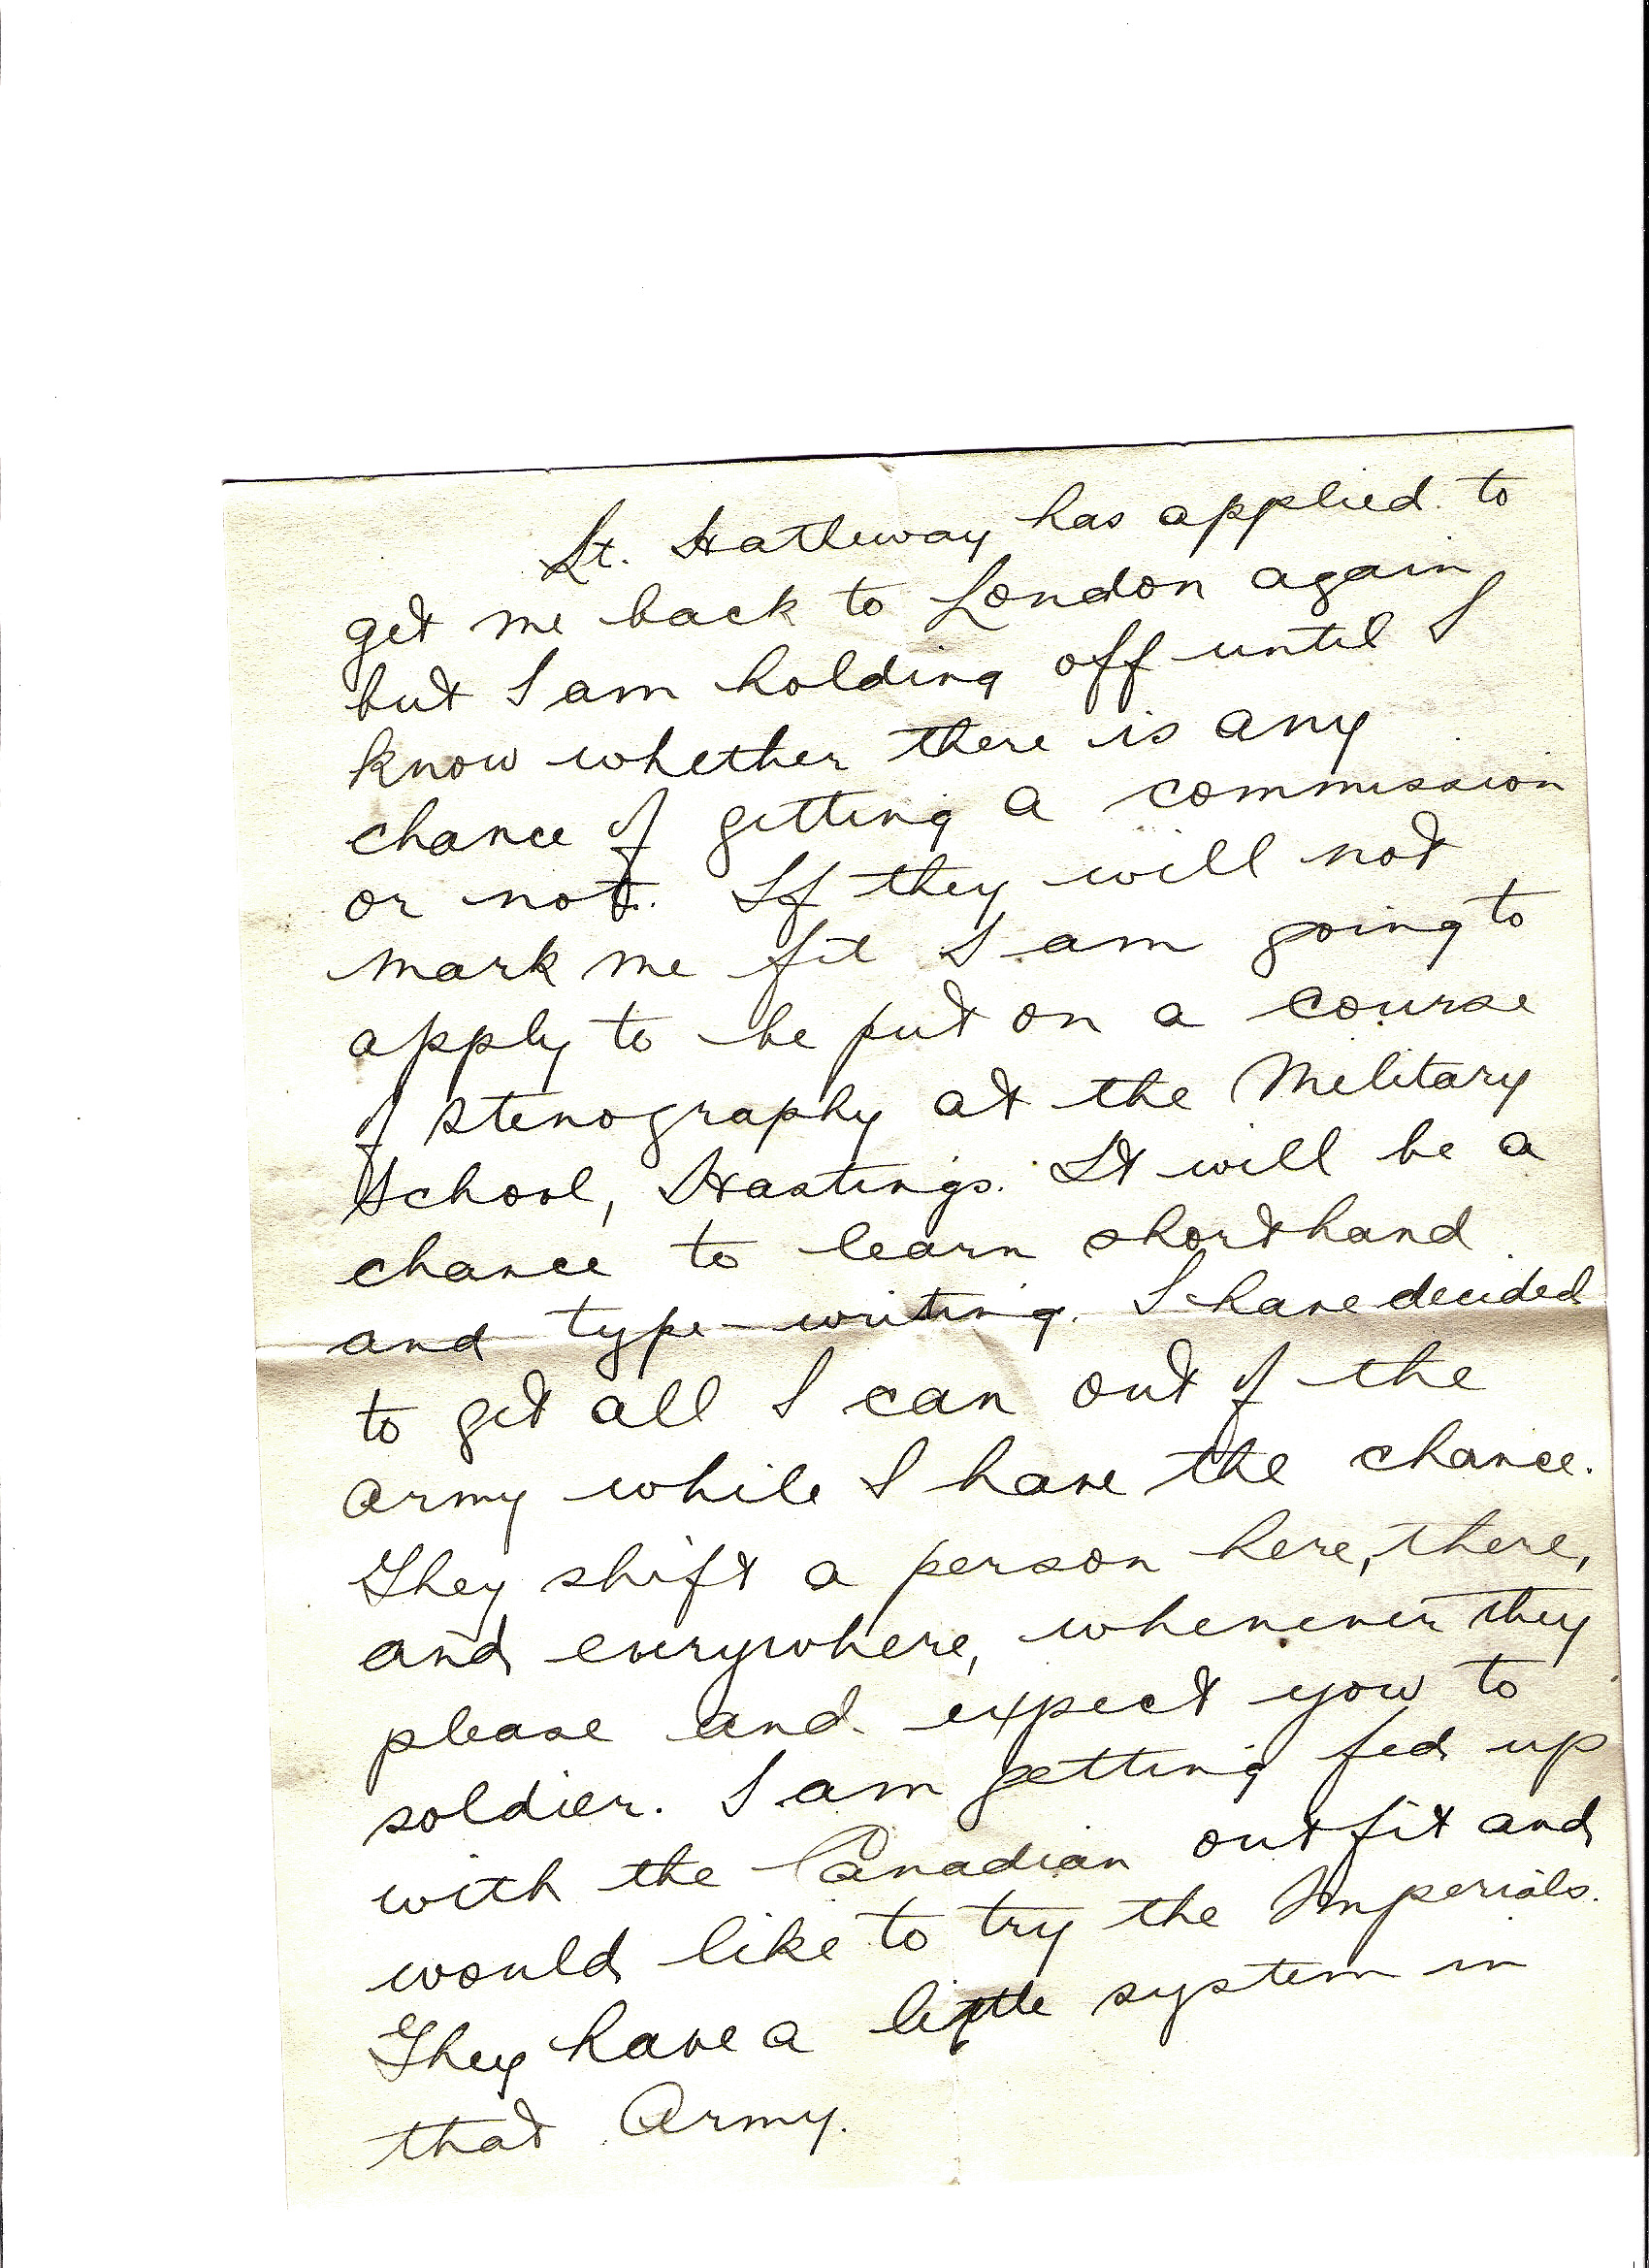 Lt. Hatheway has applied to
get me back to London again
but I am holding off until I
know whether there is any
chance of getting a commission
or not. If they will not
mark me fit I am going to
apply to be put on a course
of stenography at the Military
School, Hastings. It will be a
chance to learn shorthand
and type-writing. I have decided
to get all I can out of the
army while I have the chance.
They shift a person here, there,
and everywhere, whenever they
please and expect you to
soldier. I am getting fed up
with the Canadian outfit and
would like to try the Imperials.
They have a little system in
that Army.